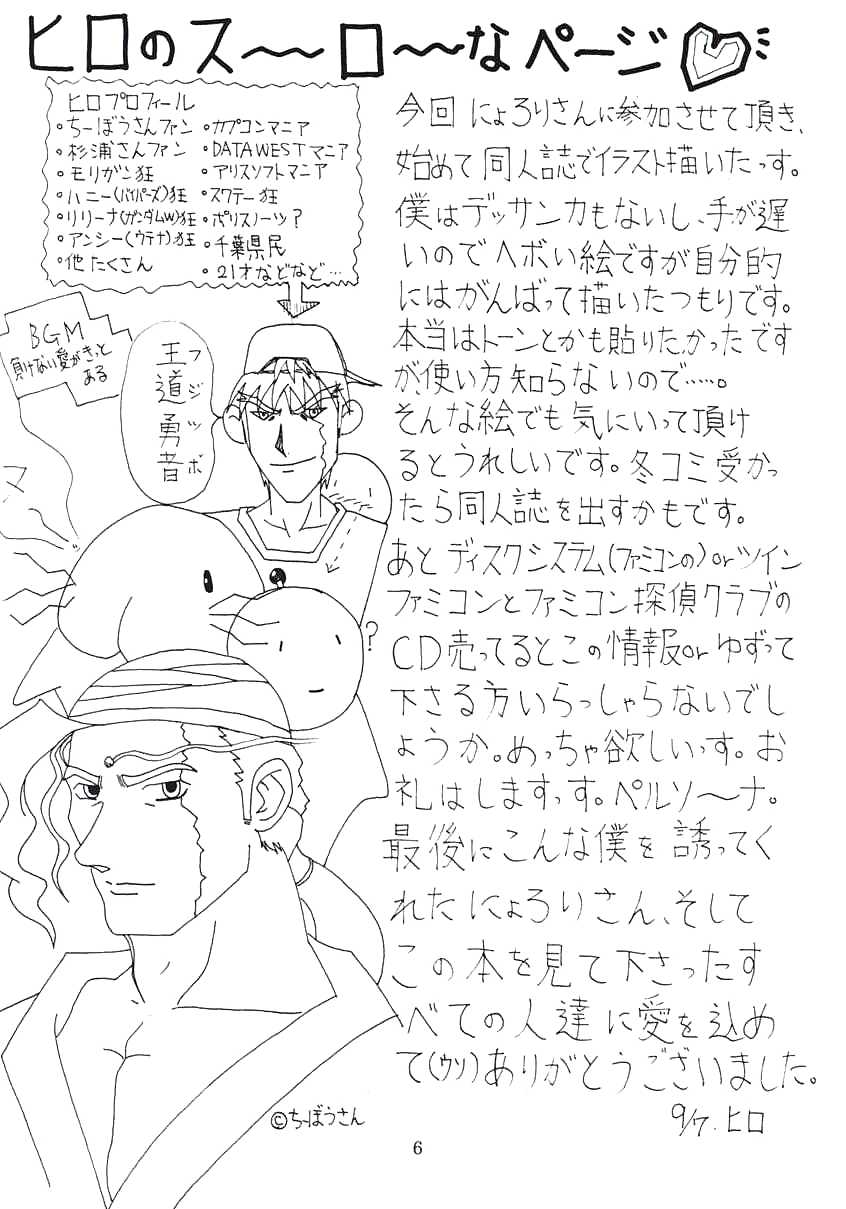 ヒロのス〜〜ロ〜〜なページ
ヒロプロフィール
・ちーぼうさんファン
・杉浦さんファン
・モリガン狂
・ハニー(バイパーズ)狂
・リリーナ(ガンダムW)狂
・アンシー(ウテナ)狂
・他たくさん
・カプコンマニア
・DATA WESTマニア
・アリスソフトマニア
・スクテー狂
・ポリスノーツ?
・千葉県民
・21才などなど…
BGM
負けない愛がきっと
ある
王道勇者
フジツボ
?
今回にょろりさんに参加させて頂き、
始めて同人誌でイラスト描いたっす。
僕はデッサン力もないし、手が遅
いのでヘボい絵ですが自分的
にはがんばって描いたつもりです。
本当はトーンとかも貼りたかったです
が、使い方知らないので……。
そんな絵でも気にいって頂け
るとうれしいです。冬コミ受かっ
たら同人誌を出すかもです。
あとディスクシステム(ファミコンの)orツイン
ファミコンとファミコン探偵クラブの
CD売ってるとこの情報orゆずって
下さる方いらっしゃらないでし
ょうか。めっちゃ欲しいっす。お
礼はしますっす。ペルソ〜ナ。
最後にこんな僕を誘ってく
れたにょろりさん、そして
この本を見て下さったす
べての人達に愛を込め
て(ウソ)ありがとうございました。
9/7. ヒロ
©ちーぼうさん
6